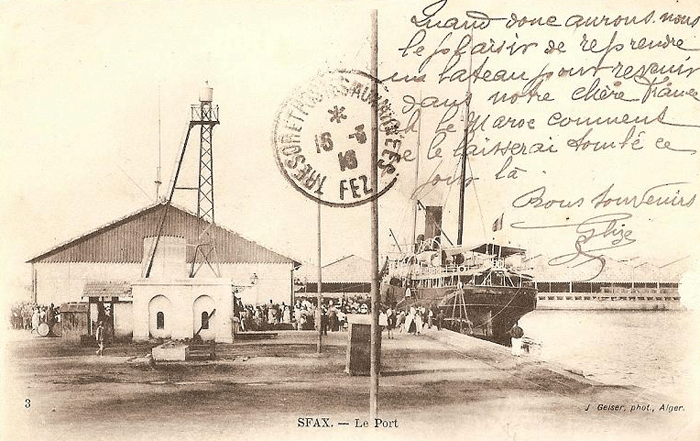 Quand donc aurons nous
le plaisir de reprendre
un bateau pour revenir
dans notre chère France
le Maroc comment
je le laisserai tombé ce
jour là.
Bons souvenirs
TRESOR ET POSTES AUX ARMEES
*
16 - 3
16
FEZ
3
SFAX. — Le Port
J Geiser, phot., Alger.